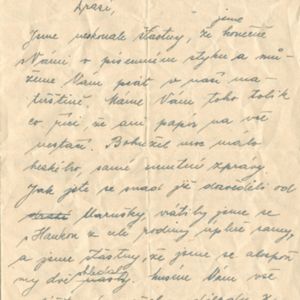 Drazí,
jsme
Jsme neskonale šťastny, že konečně
s Vámi v písemním styku a mů-
žeme Vám psát v naší ma-
teřštině. Máme Vám toho tolik
co říci že ani papír na vše
nestačí. Bohužel moc málo
hezkého, samé smutné zprávy
Jak jste se snad již dověděli od
Marušky, vrátily jsme se
s Hankou z celé rodiny úplně samy,
a jsme šťastny, že jsme se alespoň
my dvě shledaly. Musíme Vám vše